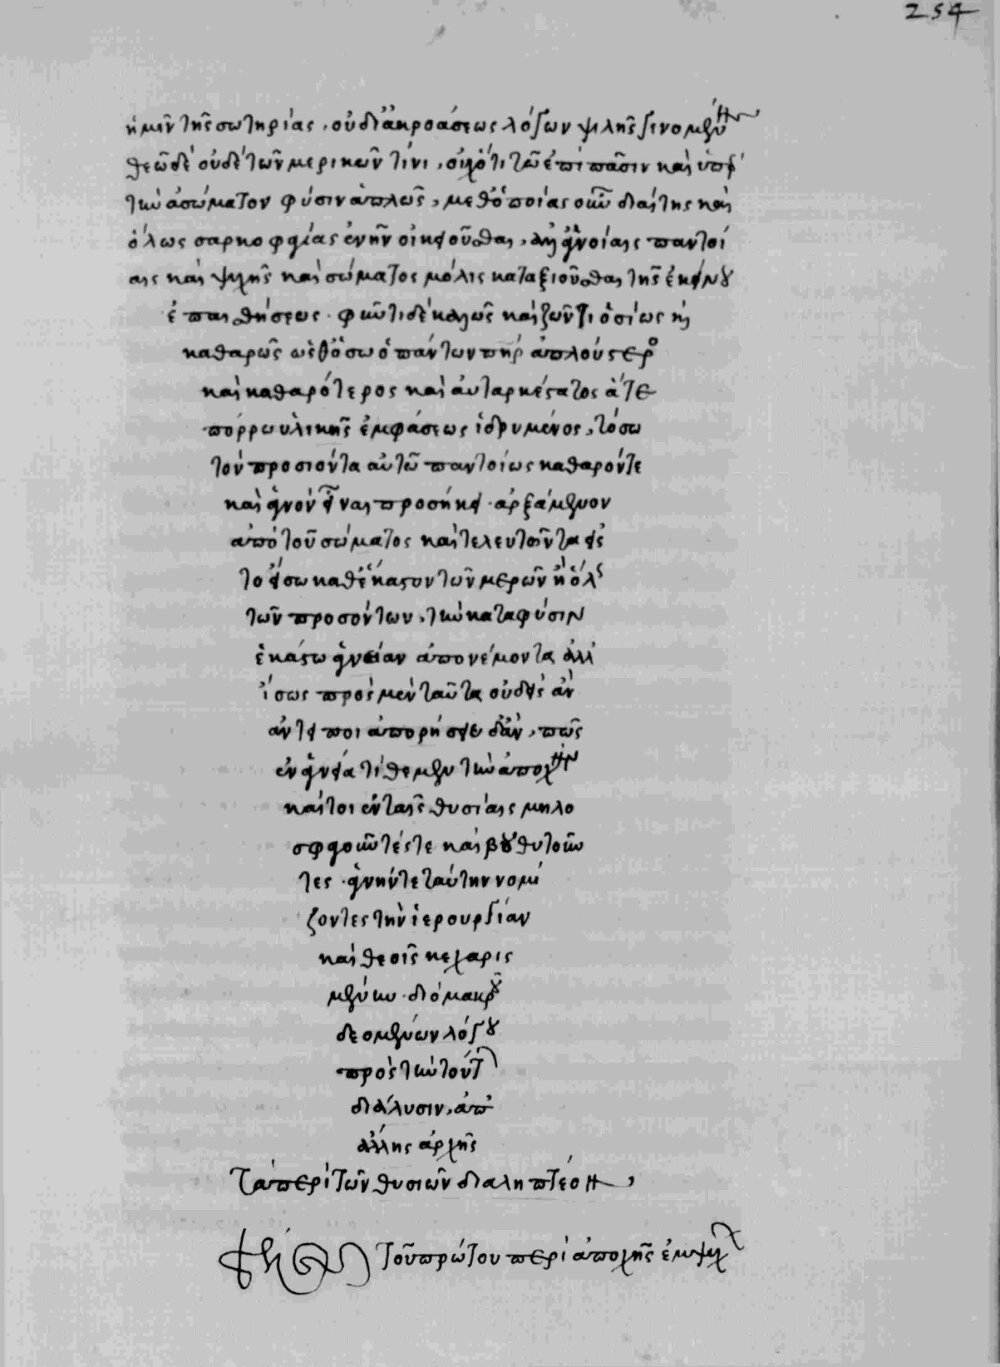 254
ἡμῖν τῆς σωτηρίας, οὐ δι' ἀκροάσεως λόγων ψιλῆς γινομένην
θεῶ δὲ οὐδὲ τῶν μερικῶν τινι, ἀλλὰ τῶ ἐπὶ πᾶσιν καὶ ὑπὲρ
τὴν ἀσώματον φύσιν ἁπλῶς, μεθ' ὁποίας οὖν διαίτης καὶ
ὅλως σαρκοφαγίας ἐνῆν οἰκειοῦσθαι, ἀλλ' ἁγνείαις παντοί
αις καὶ ψυχῆς καὶ σώματος μόλις καταξιοῦσθαι τῆς ἐκείνου
ἐπαισθήσεως· φύντι δὲ καλῶς καὶ ζῶντι ὁσίως καὶ
καθαρῶς ὥσθ' ὅσω ὁ πάντων πατὴρ ἁπλούστερος
καὶ καθαρώτερος καὶ αὐταρκέστατος ἅτε
πόρρω ὑλικῆς ἐμφάσεως ἱδρυμένος, τόσω
τὸν προσιόντα αὐτῶ παντοίως καθαρόν τε
καὶ ἁγνὸν εἶναι προσήκει· ἀρξάμενον
ἀπὸ τοῦ σώματος καὶ τελευτῶντα εἰς
τὸ εἴσω καθ' ἕκαστον τῶν μερῶν ἢ ὅλως
τῶν προσόντων, τὴν κατὰ φύσιν
ἑκάστω ἁγνείαν ἀπονέμοντα ἀλλ'
ἴσως πρὸς μὲν ταῦτα οὐδεὶς ἂν
ἀντείποι ἀπορήσειε δ' ἄν, πῶς
ἐν ἁγνεία τιθέμεθα τὴν ἀποχὴν
καίτοι ἐν ταῖς θυσίαις μηλο
σφαγοῦντές τε καὶ βουθυτοῦν
τες· ἁγνήν τε ταύτην νομί
ζοντες τὴν ἱερουργίαν
καὶ θεοῖς κεχαρισ
μένην· διὸ μακροῦ
δεομένων λόγου
πρὸς τὴν τούτων
διάλυσιν, ἀπ'
ἄλλης ἀρχῆς
τὰ περὶ τῶν θυσιῶν διαληπτέον,
τοῦ πρώτου περὶ ἀποχῆς ἐμψύχων